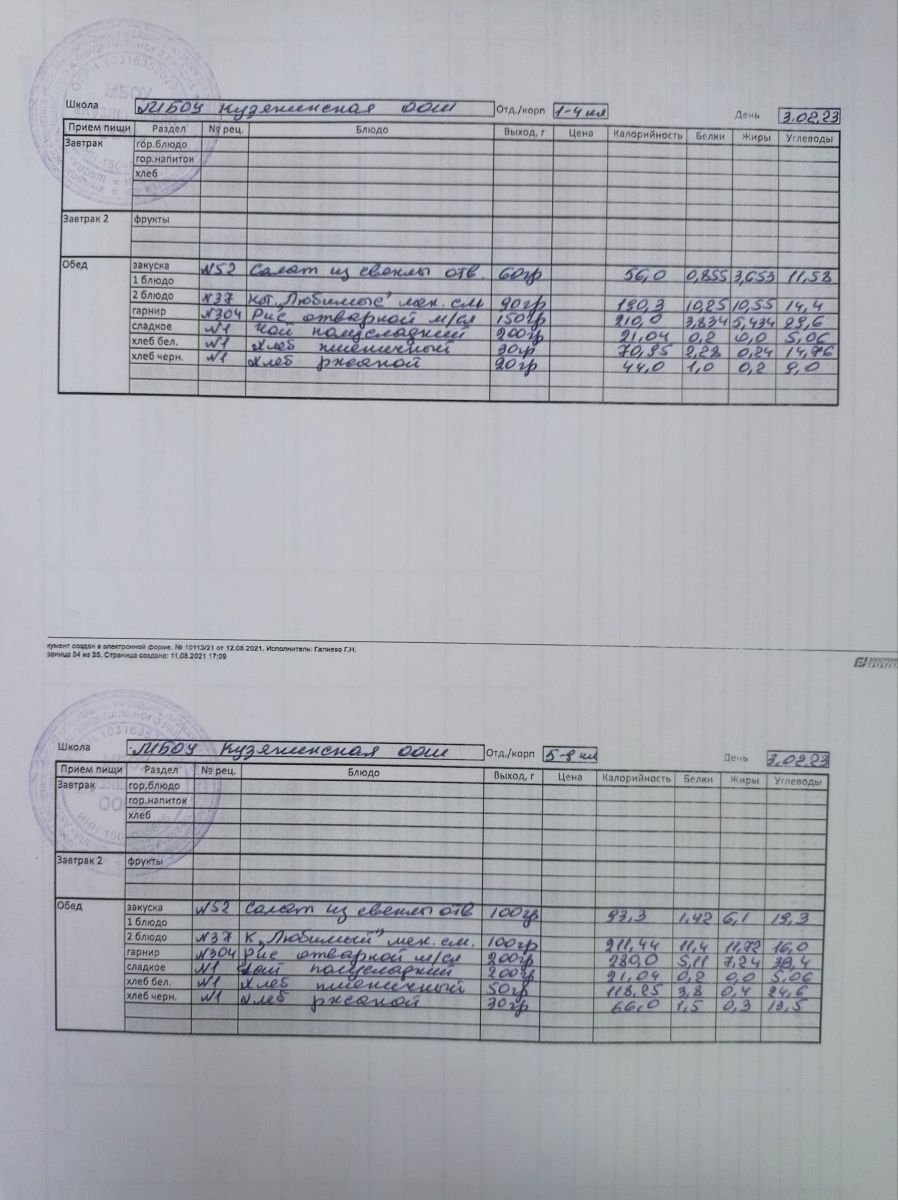 Школа МБОУ Кузякинская ООШ Отд./корп 1-4 кл День 3.02.23
Прием пищи Раздел № рец. Блюдо Выход, г Цена Калорийность Белки Жиры Углеводы
Завтрак гор.блюдо
гор.напиток
хлеб
Завтрак 2 фрукты
Обед закуска №52 Салат из свеклы отв. 60гр 56,0 0,855 3,653 11,58
1 блюдо
2 блюдо №37 Кот. „Любимые" мяс. 90гр 190,3 10,25 10,55 14,4
гарнир №304 Рис отварной м/сл 150гр 210,0 3,834 5,434 29,6
сладкое №1 Чай полусладкий 200гр 21,04 0,2 0,0 5,06
хлеб бел. №1 Хлеб пшеничный 30гр 70,95 2,28 0,24 14,76
хлеб черн. №1 Хлеб ржаной 20гр 44,0 1,0 0,2 9,0
кумент создан в электронной форме. № 10113/21 от 12.08.2021. Исполнитель: Галиева Г.Н.
раница 34 из 35. Страница создана: 11.08.2021 17:09
ЭЛЕКТРОНН
ТАТАРСТ
Школа МБОУ Кузякинская ООШ Отд./корп 5-9 кл День 3.02.23
Прием пищи Раздел № рец. Блюдо Выход, г Цена Калорийность Белки Жиры Углеводы
Завтрак гор.блюдо
гор.напиток
хлеб
Завтрак 2 фрукты
Обед закуска №52 Салат из свеклы отв 100гр 93,3 1,42 6,1 19,3
1 блюдо
2 блюдо №37 К. „Любимый" мяс. 100гр 211,44 11,4 11,72 16,0
гарнир №304 Рис отварной м/сл 200гр 280,0 5,11 7,24 39,4
сладкое №1 Чай полусладкий 200гр 21,04 0,2 0,0 5,06
хлеб бел. №1 Хлеб пшеничный 50гр 118,25 3,8 0,4 24,6
хлеб черн. №1 Хлеб ржаной 30гр 66,0 1,5 0,3 13,5